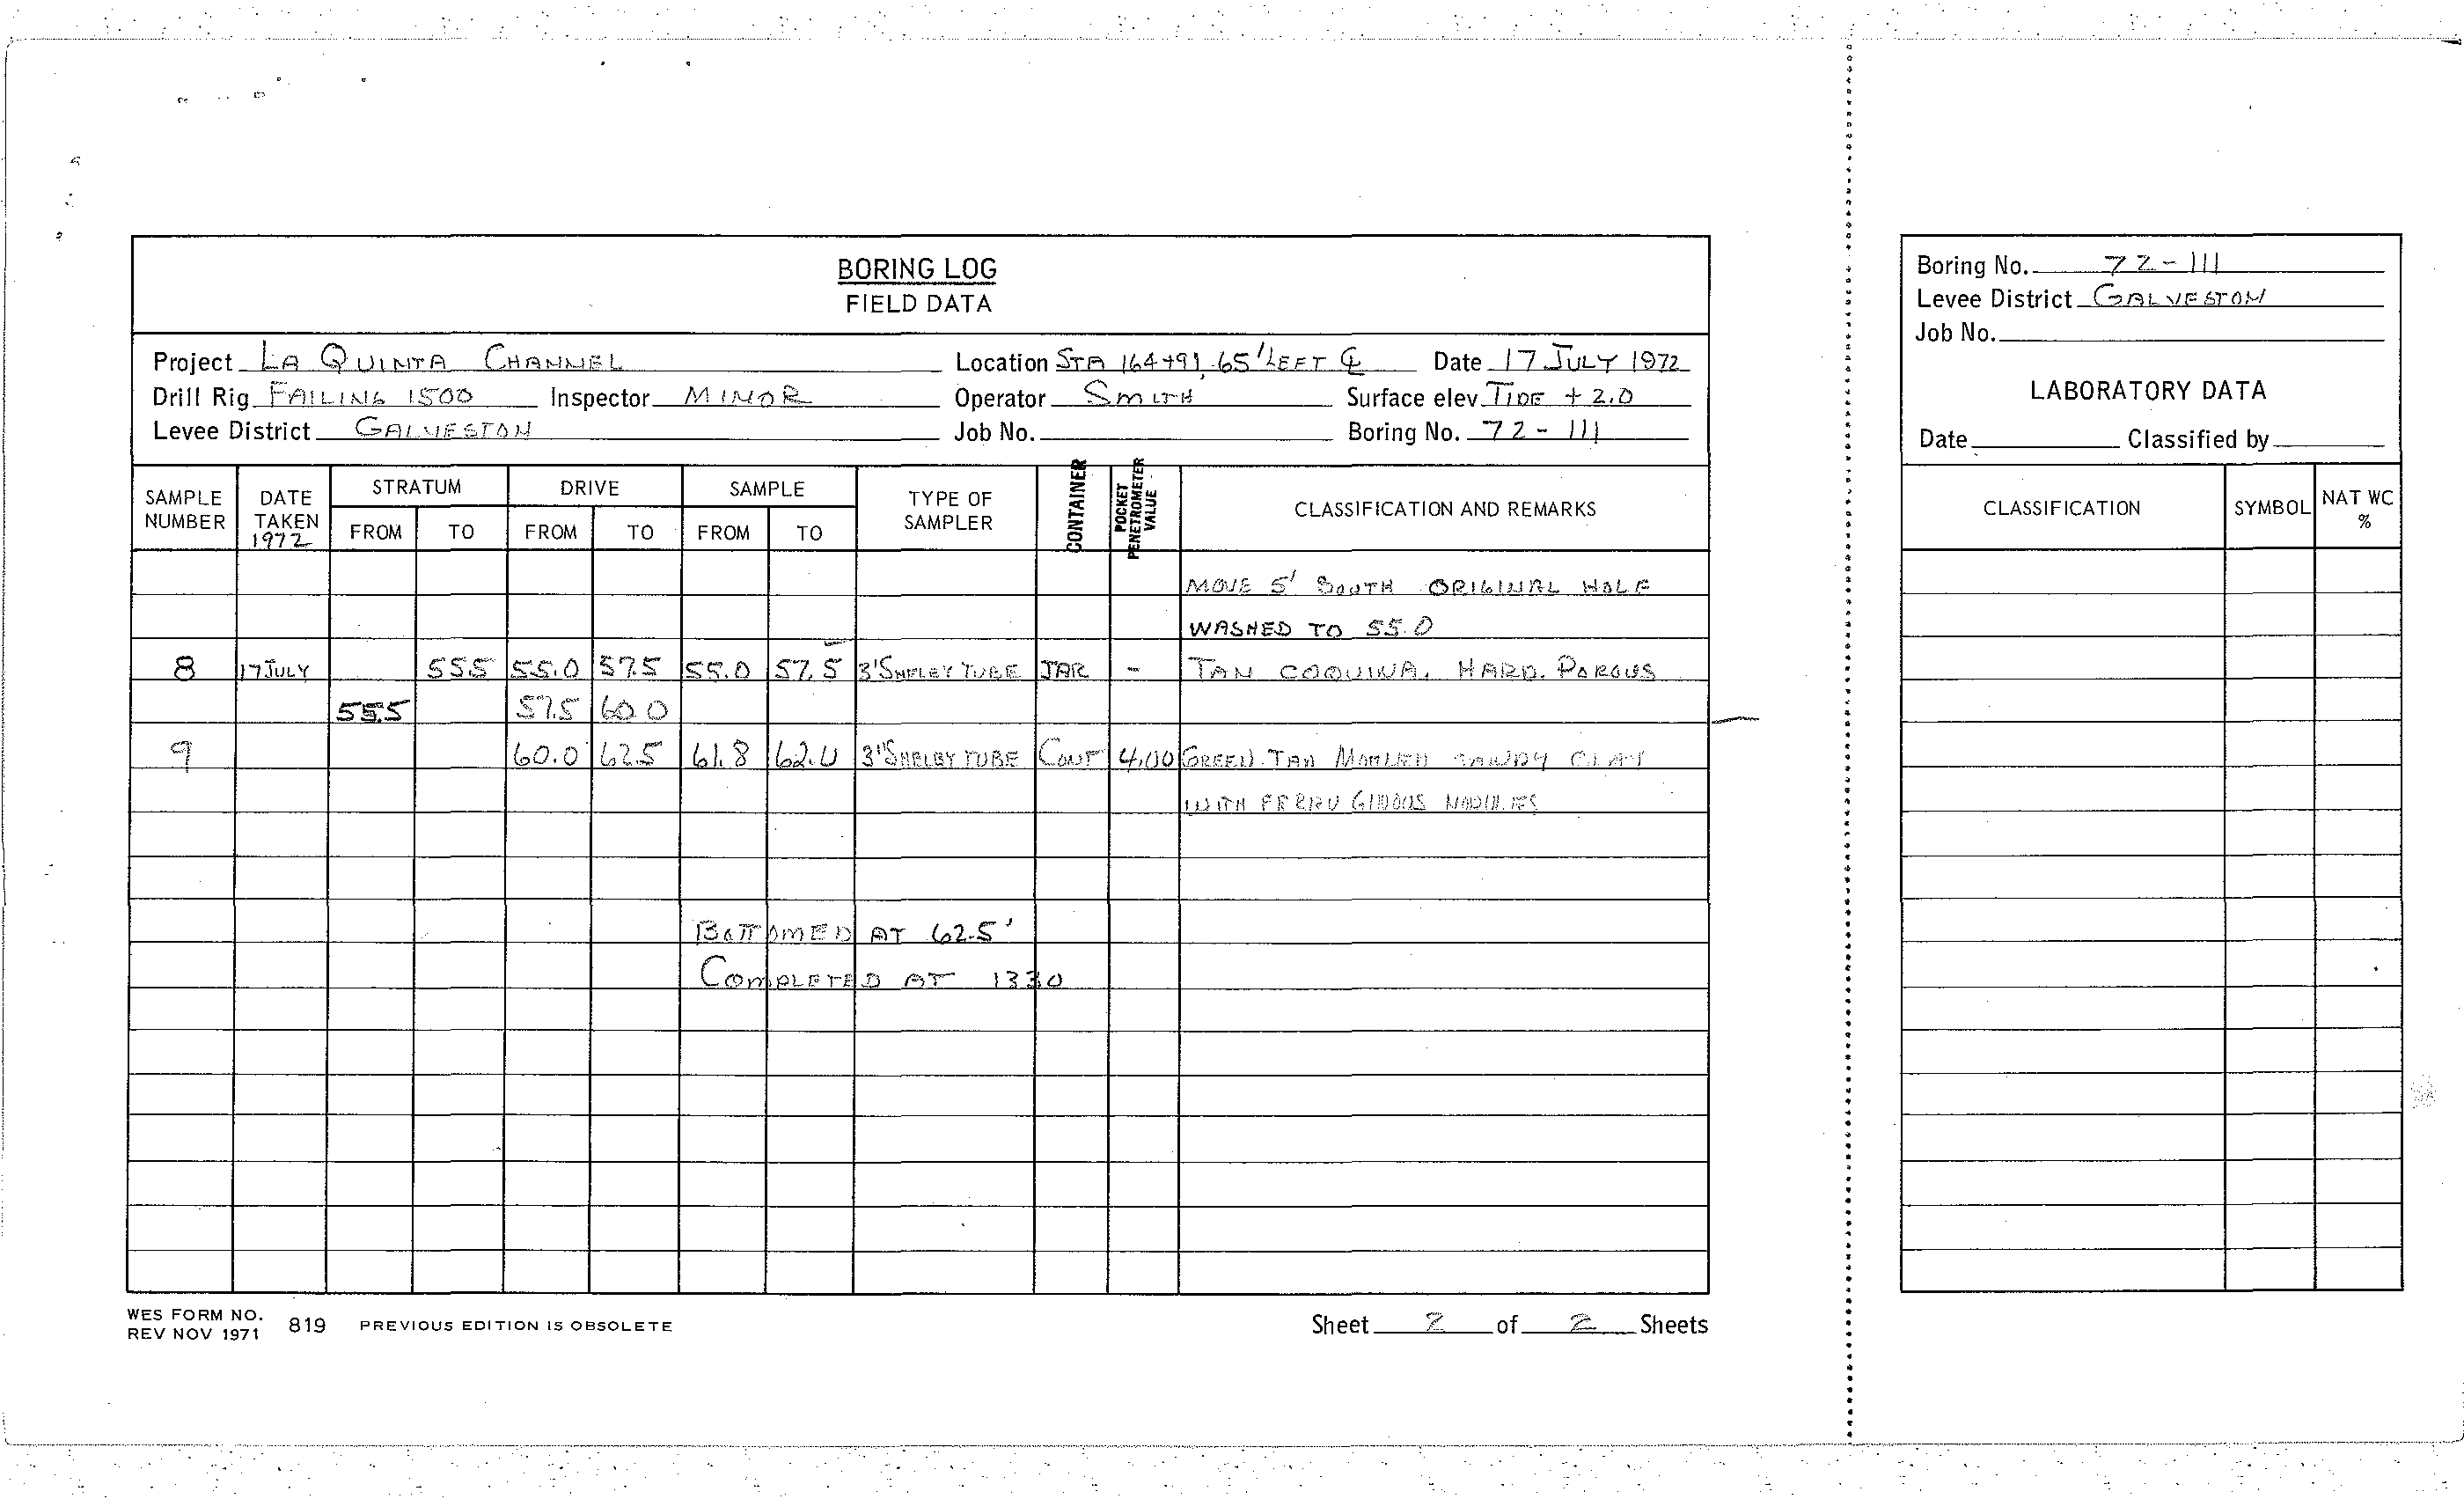 BORING LOG
FIELD DATA
Project LA QUINTA CHANNEL Location STA 164+91, 65' LEFT ℄ Date 17 JULY 1972
Drill Rig FAILING 1500 Inspector MINOR Operator SMITH Surface elev. TIDE +2.0
Levee District GALVESTON Job No. Boring No. 72-111
SAMPLE NUMBER DATE TAKEN 1972 STRATUM FROM TO DRIVE FROM TO SAMPLE FROM TO TYPE OF SAMPLER CONTAINER POCKET PENETROMETER VALUE CLASSIFICATION AND REMARKS
MOVE 5' SOUTH ORIGINAL HOLE
WASHED TO 55.0
8 17 JULY 55.5 55.0 57.5 55.0 57.5 3" SHELBY TUBE JAR - TAN COQUINA, HARD. POROUS
55.5 57.5 60.0
9 60.0 62.5 61.8 62.0 3" SHELBY TUBE CONT 4.00 GREEN. TAN MOTTLED SANDY CLAY
WITH FERRUGINOUS NODULES
BOTTOMED AT 62.5'
COMPLETED AT 1330
WES FORM NO. 819 PREVIOUS EDITION IS OBSOLETE
REV NOV 1971
Sheet 2 of 2 Sheets
Boring No. 72-111
Levee District GALVESTON
Job No.
LABORATORY DATA
Date Classified by
CLASSIFICATION SYMBOL NAT WC %